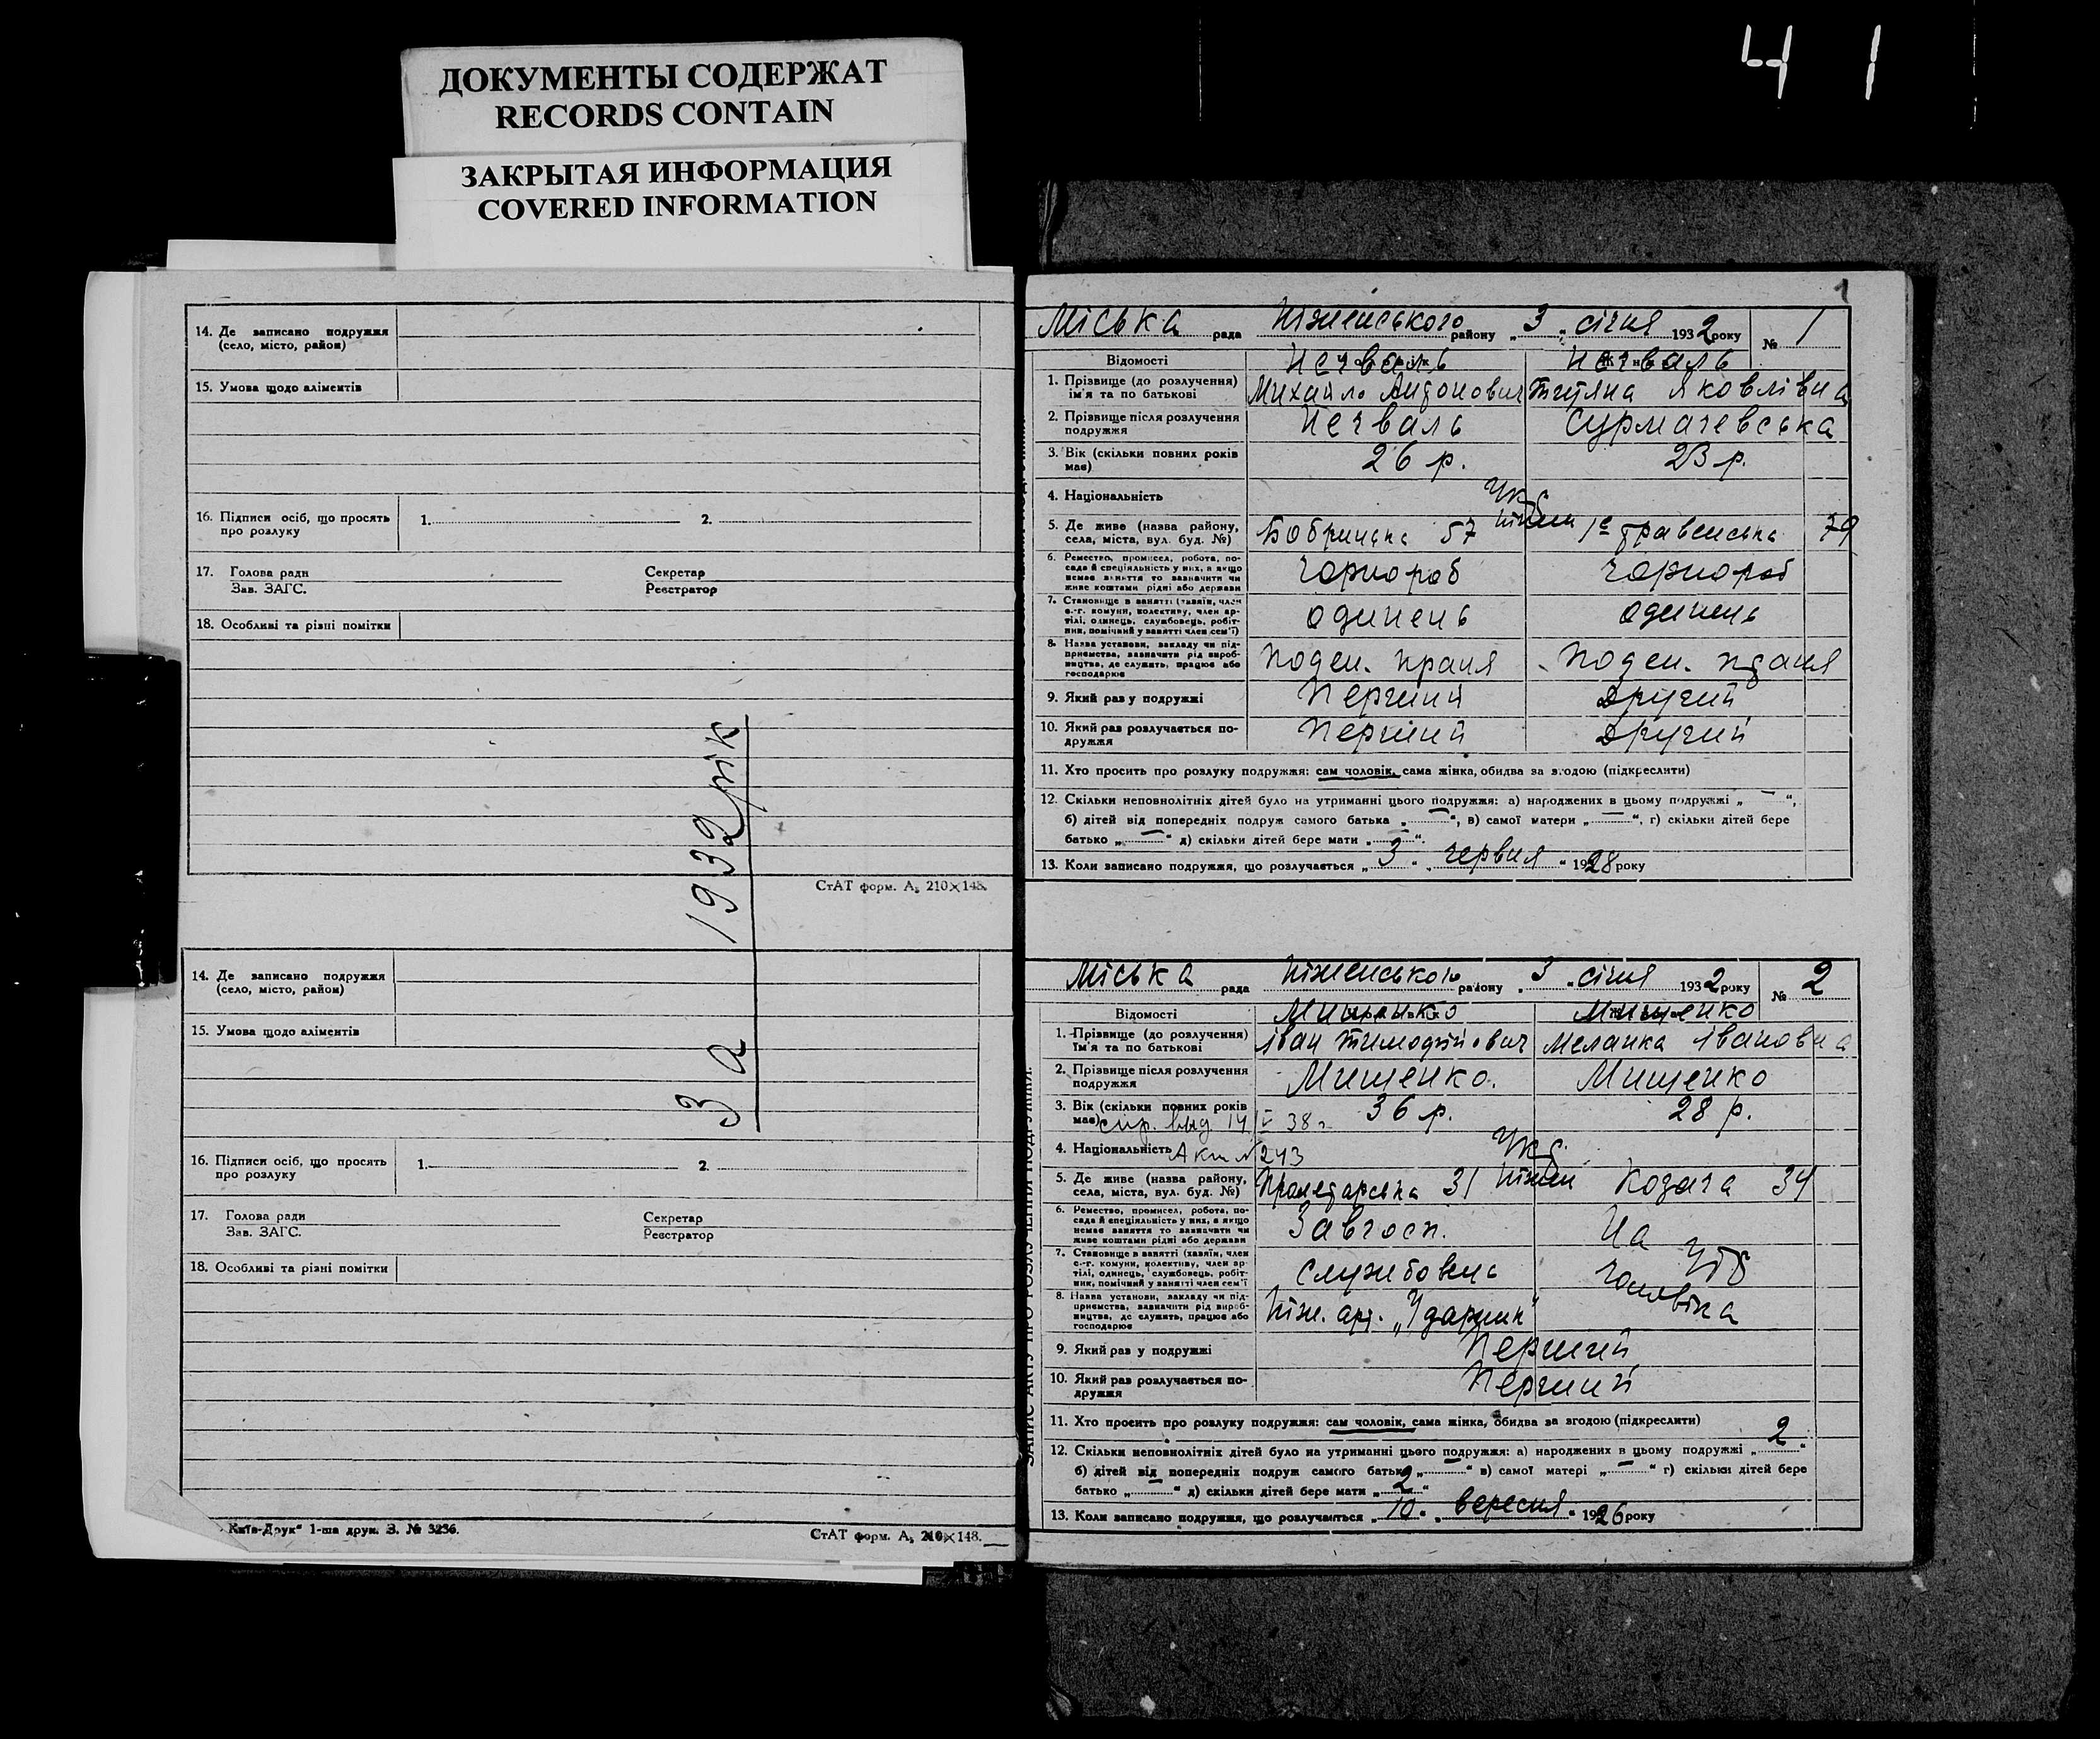 41
ДОКУМЕНТЫ СОДЕРЖАТ
RECORDS CONTAIN
ЗАКРЫТАЯ ИНФОРМАЦИЯ
COVERED INFORMATION
14. Де записано подружжя
(село, місто, район)
15. Умова щодо аліментів
16. Підписи осіб, що просять
про розлуку
1. 2.
17. Голова ради Секретар
Зав. ЗАГС. Реєстратор
18. Особливі та різні помітки
СтАТ форм. А5 210×148.
За 1932 рік
14. Де записано подружжя
(село, місто, район)
15. Умова щодо аліментів
16. Підписи осіб, що просять
про розлуку
1. 2.
17. Голова ради Секретар
Зав. ЗАГС. Реєстратор
18. Особливі та різні помітки
Київ-Друк" 1-ша друк. З. № 3236. СтАТ форм. А5 210×148.
1
Міська рада Ніженського району „3„ січня 1932 року № 1
Відомості Нечваль Нечваль
1. Прізвище (до розлучення) Михайло Антонович Тетяна Яковлівна
ім'я та по батькові
2. Прізвище після розлучення Нечваль Сурмачевська
подружжя
3. Вік (скільки повних років 26 р. 23 р.
має)
4. Національність Укр
5. Де живе (назва району, Бобрицька 57 Ніжен 1е травенська 79
села, міста, вул. буд. №)
6. Ремество, промисел, робота, по-
сада й спеціяльність у них, а якщо Чорнороб Чорнороб
немає заняття то зазначити чи
живе коштами рідні або держави
7. Становище в занятті (хазяїн, член
с.-г. комуни, колективу, член ар- одинець одинець
тілі, одинець, службовець, робіт-
ник, помічний у занятті член сем'ї)
8. Назва установи, закладу чи під-
приємства, зазначити рід вироб- поден. праця поден. праця
ництва, де служить, працює або
господарює
9. Який раз у подружжі Перший Другий
10. Який раз розлучається по- Перший Другий
дружжя
11. Хто просить про розлуку подружжя: сам чоловік, сама жінка, обидва за згодою (підкреслити)
12. Скільки неповнолітніх дітей було на утриманні цього подружжя: а) народжених в цьому подружжі „ — “,
б) дітей від попередніх подруж самого батька „ — “, в) самої матери „ — “, г) скільки дітей бере
батько „ — “ д) скільки дітей бере мати „ — “.
13. Коли записано подружжя, що розлучається „ 3 „ „ червня “ 1928 року
Міська рада Ніженського району „3„ січня 1932 року № 2
Відомості Мищенко Мищенко
1. Прізвище (до розлучення) Іван Тимофійович Меланка Івановна
Ім'я та по батькові
2. Прізвище після розлучення Мищенко. Мищенко
подружжя
3. Вік (скільки повних років 36 р. 28 р.
має) спр. выд 14/V 38 г
4. Національність Акт № 243 Укр.
5. Де живе (назва району, Пролетарська 31 Ніжен Козача 34
села, міста, вул. буд. №)
6. Ремество, промисел, робота, по-
сада й спеціяльність у них, а якщо Завгосп. На
немає заняття то зазначити чи
живе коштами рідні або держави
7. Становище в занятті (хазяїн, член
с.-г. комуни, колективу, член ар- службовець чоловіка
тілі, одинець, службовець, робіт-
ник, помічний у занятті член сем'ї
8. Назва установи, закладу чи під-
приємства, зазначити рід вироб- Ніж. арт. „Ударник"
ництва, де служить, працює або
господарює
9. Який раз у подружжі Перший
10. Який раз розлучається по- Перший
дружжя
11. Хто просить про розлуку подружжя: сам чоловік, сама жінка, обидва за згодою (підкреслити)
12. Скільки неповнолітніх дітей було на утриманні цього подружжя: а) народжених в цьому подружжі „ 2 “
б) дітей від попередніх подруж самого батька „ — “ в) самої матері „ — “ г) скільки дітей бере
батько „ — “ д) скільки дітей бере мати „ 2 “
13. Коли записано подружжя, що розлучається „ 10 „ „ вересня “ 1926 року